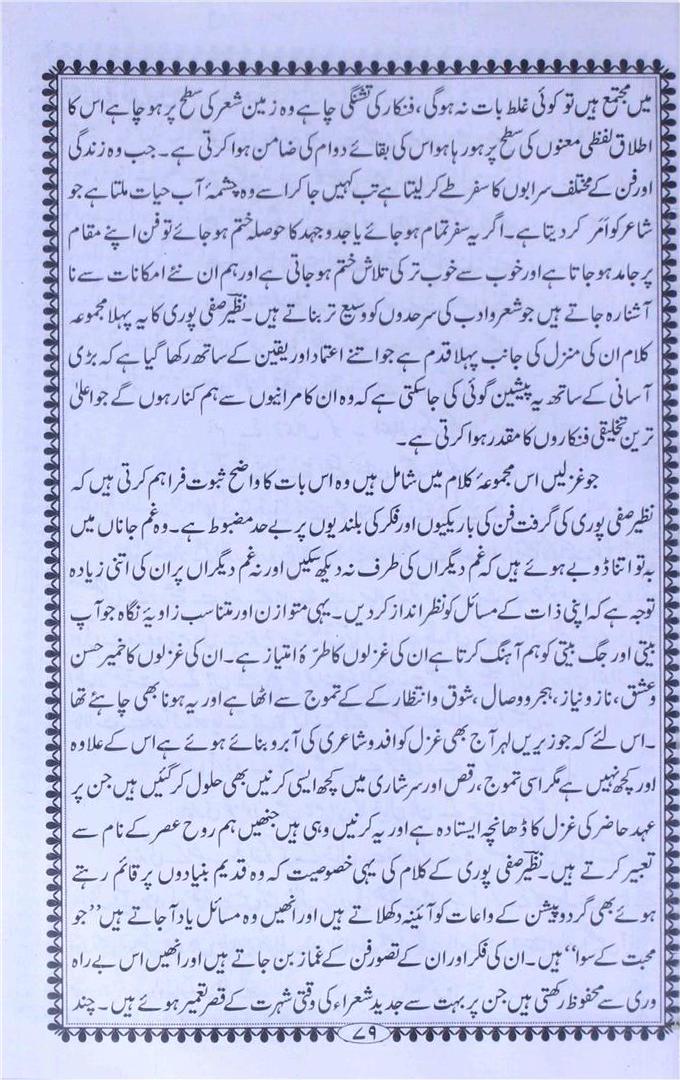 میں مجتمع ہیں تو کوئی غلط بات نہ ہوگی، فنکار کی تشنگی چاہے وہ زمین شعر کی سطح پر ہو چاہے اس کا
اطلاق لفظی معنوں کی سطح پر ہو رہا ہو اس کی بقائے دوام کی ضامن ہوا کرتی ہے۔ جب وہ زندگی
اور فن کے مختلف سرابوں کا سفر طے کر لیتا ہے تب کہیں جا کر اسے وہ چشمۂ آب حیات ملتا ہے جو
شاعر کو امَر کر دیتا ہے۔ اگر یہ سفر تمام ہو جائے یا جد و جہد کا حوصلہ ختم ہو جائے تو فن اپنے مقام
پر جامد ہو جاتا ہے اور خوب سے خوب تر کی تلاش ختم ہو جاتی ہے اور ہم ان نئے امکانات سے نا
آشنا رہ جاتے ہیں جو شعر و ادب کی سرحدوں کو وسیع تر بناتے ہیں۔ نظیرؔ صفی پوری کا یہ پہلا مجموعہ
کلام ان کی منزل کی جانب پہلا قدم ہے جو اتنے اعتماد اور یقین کے ساتھ رکھا گیا ہے کہ بڑی
آسانی کے ساتھ یہ پیشین گوئی کی جاسکتی ہے کہ وہ ان کامرانیوں سے ہم کنار ہوں گے جو اعلیٰ
ترین تخلیقی فنکاروں کا مقدر ہوا کرتی ہے۔
جو غزلیں اس مجموعۂ کلام میں شامل ہیں وہ اس بات کا واضح ثبوت فراہم کرتی ہیں کہ
نظیرؔ صفی پوری کی گرفت فن کی باریکیوں اور فکر کی بلندیوں پر بے حد مضبوط ہے۔ وہ غم جاناں میں
نہ تو اتنا ڈوبے ہوئے ہیں کہ غم دیگراں کی طرف نہ دیکھ سکیں اور نہ غم دیگراں پر ان کی اتنی زیادہ
توجہ ہے کہ اپنی ذات کے مسائل کو نظر انداز کر دیں۔ یہی متوازن اور متناسب زاویۂ نگاہ جو آپ
بیتی اور جگ بیتی کو ہم آہنگ کرتا ہے ان کی غزلوں کا طرّۂ امتیاز ہے۔ ان کی غزلوں کا خمیر حسن
و عشق، ناز و نیاز، ہجر و وصال، شوق و انتظار کے کے تموج سے اٹھا ہے اور یہ ہونا بھی چاہئے تھا
۔ اس لئے کہ جو زیریں لہر آج بھی غزل کو افد و شاعری کی آبرو بنائے ہوئے ہے اس کے علاوہ
اور کچھ نہیں ہے مگر اسی تموج، رقص اور سرشاری میں کچھ ایسی کرنیں بھی حلول کر گئیں ہیں جن پر
عہد حاضر کی غزل کا ڈھانچہ ایستادہ ہے اور یہ کرنیں وہی ہیں جنھیں ہم روح عصر کے نام سے
تعبیر کرتے ہیں۔ نظیرؔ صفی پوری کے کلام کی یہی خصوصیت کہ وہ قدیم بنیادوں پر قائم رہتے
ہوئے بھی گرد و پیشن کے واعات کو آئینہ دکھلاتے ہیں اور انھیں وہ مسائل یاد آجاتے ہیں ’’جو
محبت کے سوا‘‘ ہیں۔ ان کی فکر اور ان کے تصور فن کے غماز بن جاتے ہیں اور انھیں اس بے راہ
وری سے محفوظ رکھتی ہیں جن پر بہت سے جدید شعراء کی وقتی شہرت کے قصر تعمیر ہوئے ہیں۔ چند
۷۹